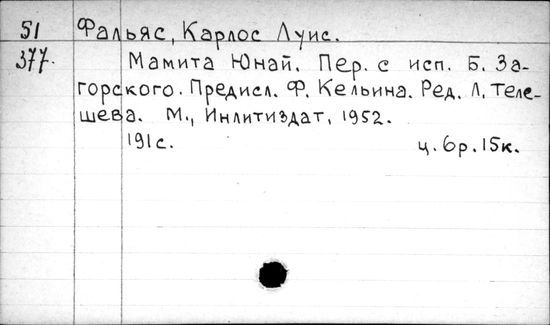 51 Фальяс, Карлос Луис.
377. Мамита Юнай. Пер. с исп. Б. За-
горского. Предисл. Ф. Кельина. Ред. Л. Теле-
шева. М., Инлитиздат, 1952.
191с. ц. 6р. 15к.